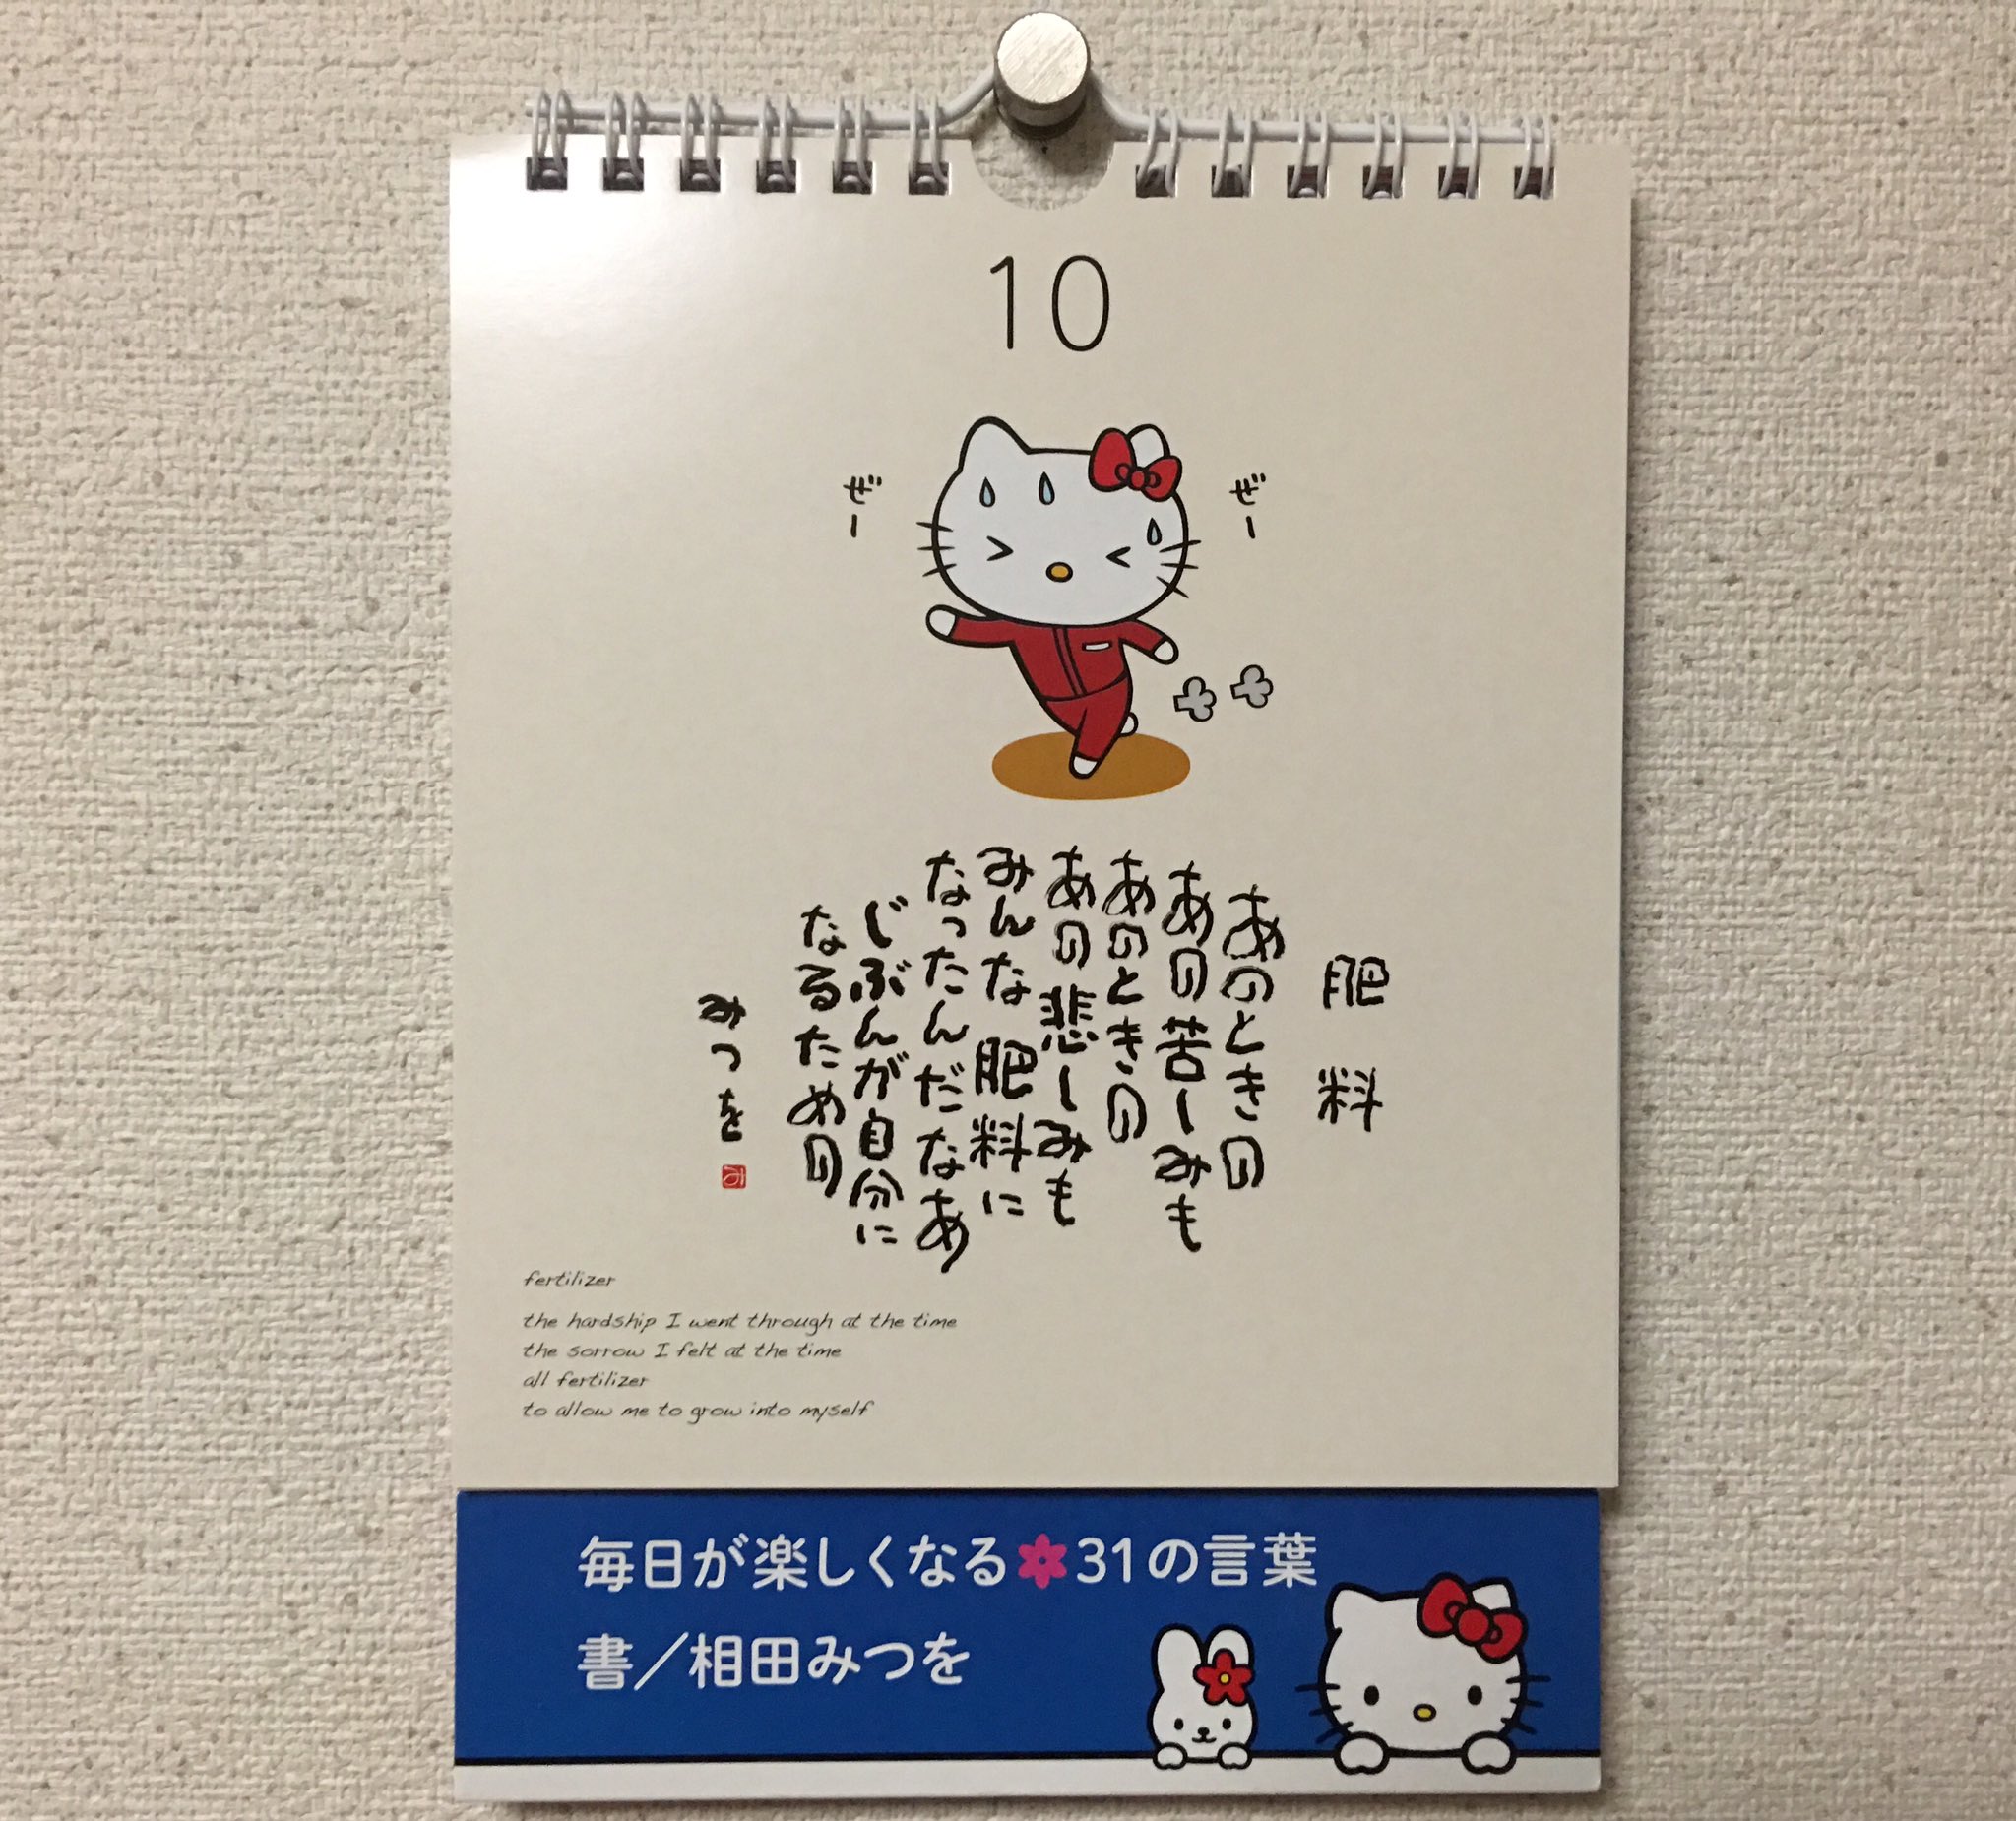 10
ぜー
ぜー
肥料
あのときの
あの苦しみも
あのときの
あの悲しみも
みんな肥料に
なったんだなあ
じぶんが自分に
なるための
みつを
fertilizer
the hardship I went through at the time
the sorrow I felt at the time
all fertilizer
to allow me to grow into myself
毎日が楽しくなる31の言葉
書／相田みつを